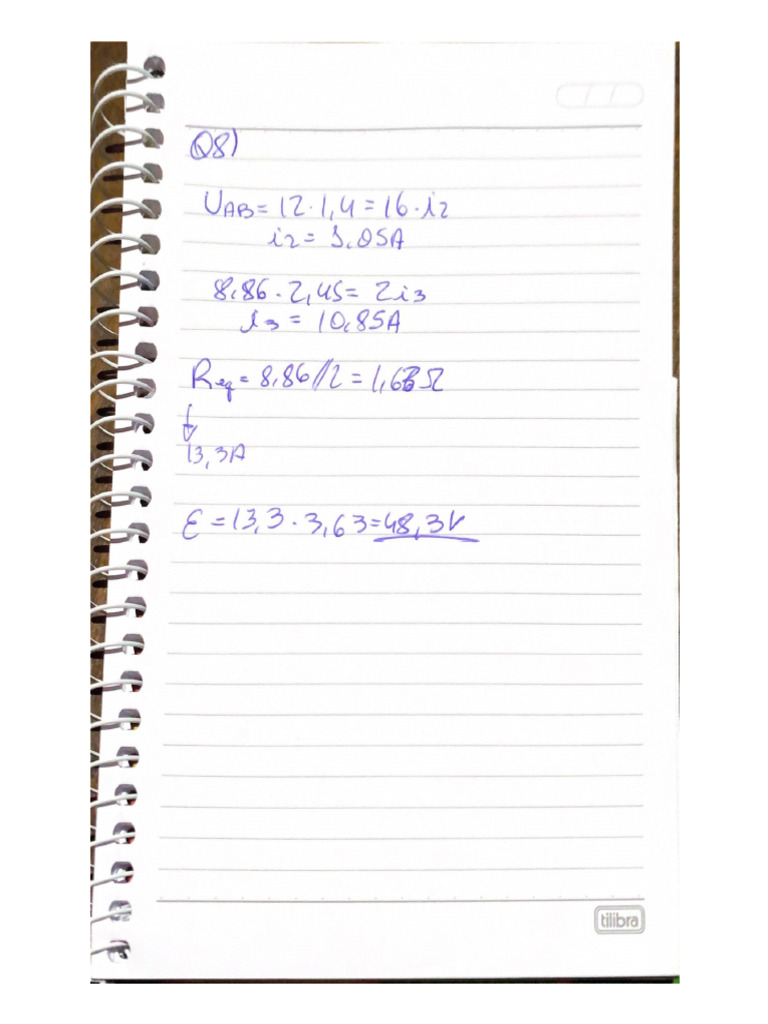 Q8)
UAB = 12 · 1,4 = 16 · i2
i2 = 1,05A
8,86 · 2,45 = 2i3
i3 = 10,85A
Req = 8,86//2 = 1,63Ω
↓
13,3A
ε = 13,3 · 3,63 = 48,3V
tilibra